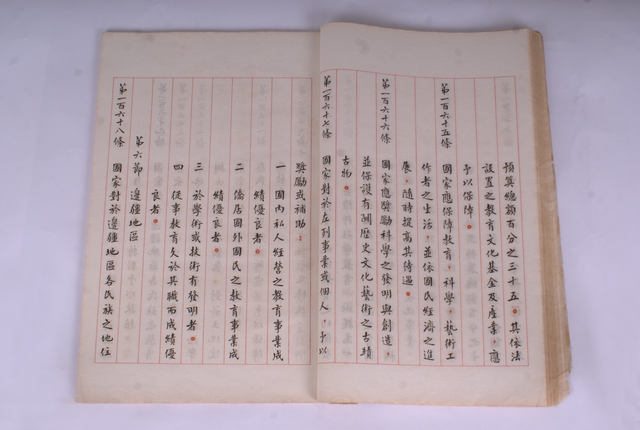 預算總額百分之三十五。其依法
設置之教育文化基金及產業，應
予以保障。
第一百六十五條 國家應保障教育、科學、藝術工
作者之生活，並依國民經濟之進
展，隨時提高其待遇。
第一百六十六條 國家應獎勵科學之發明與創造，
並保護有關歷史文化藝術之古蹟
古物。
第一百六十七條 國家對於左列事業或個人，予以
獎勵或補助：
一 國內私人經營之教育事業成
績優良者。
二 僑居國外國民之教育事業成
績優良者。
三 於學術或技術有發明者。
四 從事教育久於其職而成績優
良者。
第六節 邊疆地區
第一百六十八條 國家對於邊疆地區各民族之地位